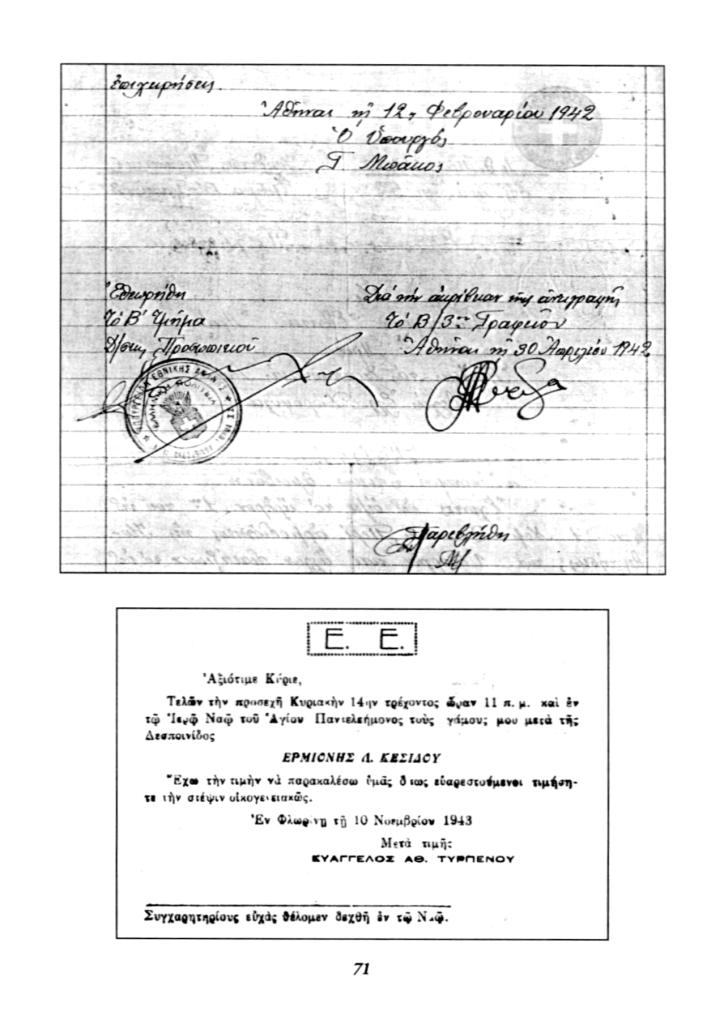 ἐπιχειρήσεις.
Ἀθῆναι τῇ 12ῃ Φεβρουαρίου 1942
Ὁ Ὑπουργός
Γ. Μπάκος
Ἐθεωρήθη
Τό Β' Τμῆμα
Δ/σεως Προσωπικοῦ
Διά τήν ἀκρίβειαν τῆς ἀντιγραφῆς
Τό Β/3ον Γραφεῖον
Ἀθῆναι τῇ 30 Ἀπριλίου 1942
Παρεβλήθη
Ε. Ε.
Ἀξιότιμε Κύριε,
Τελῶν τὴν προσεχῆ Κυριακὴν 14ην τρέχοντος ὥραν 11 π. μ. καὶ ἐν
τῷ Ἱερῷ Ναῷ τοῦ Ἁγίου Παντελεήμονος τοὺς γάμους μου μετὰ τῆς
Δεσποινίδος
ΕΡΜΙΟΝΗΣ Λ. ΚΕΣΙΔΟΥ
Ἔχω τὴν τιμὴν νὰ παρακαλέσω ὑμᾶς ὅπως εὐαρεστούμενοι τιμήση-
τε τὴν στέψιν οἰκογενειακῶς.
Ἐν Φλωρίνῃ τῇ 10 Νοεμβρίου 1943
Μετὰ τιμῆς
ΕΥΑΓΓΕΛΟΣ ΑΘ. ΤΥΡΠΕΝΟΥ
Συγχαρητηρίους εὐχὰς θέλομεν δεχθῆ ἐν τῷ Ναῷ.
71